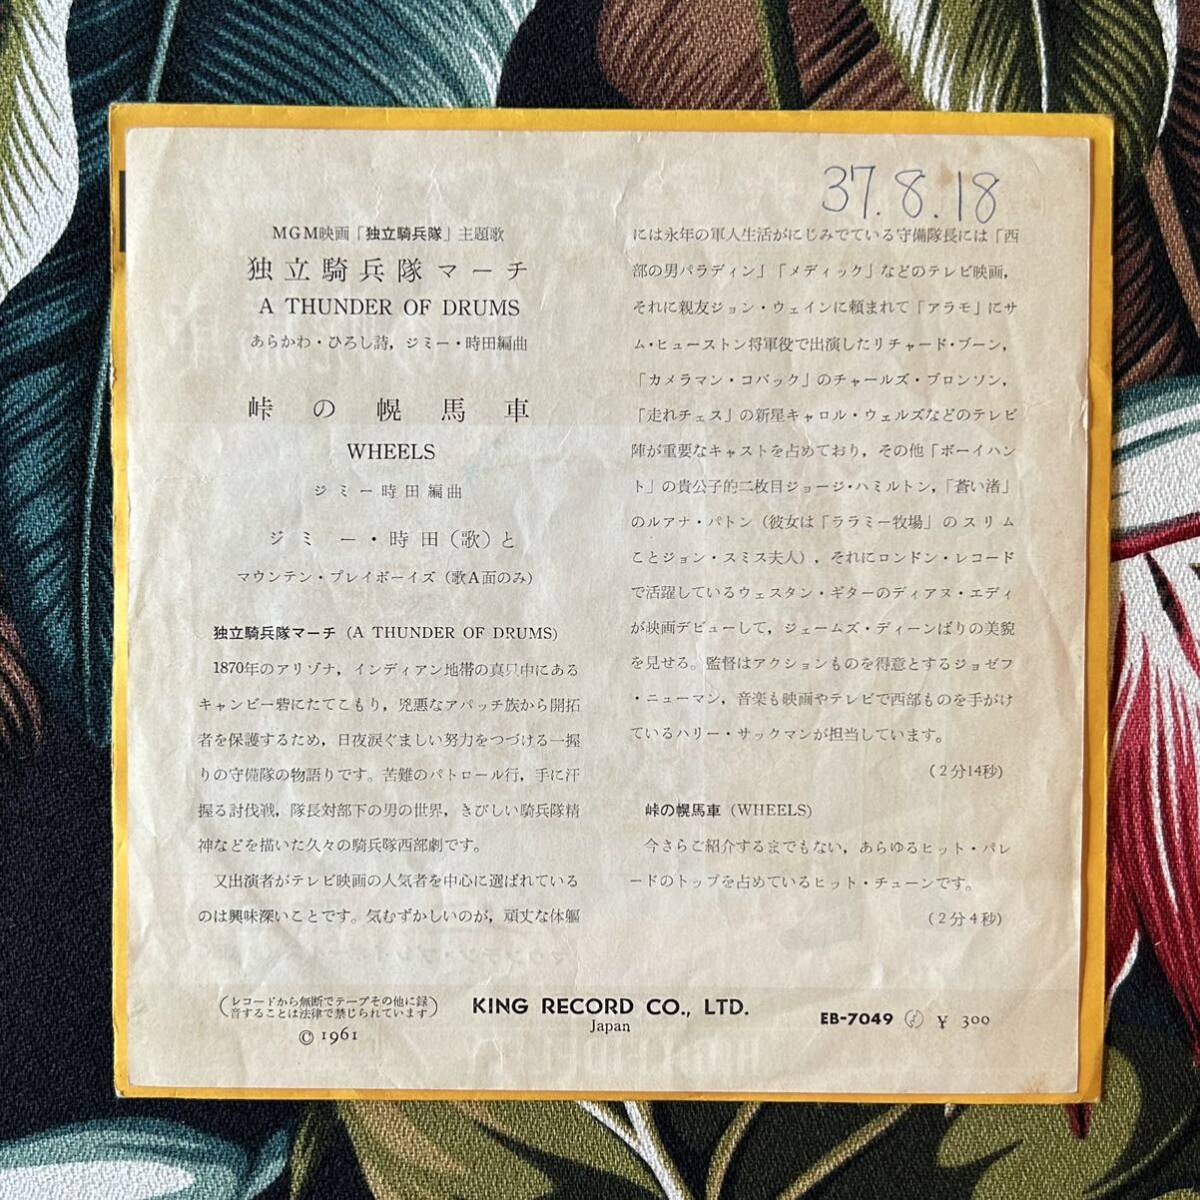 37.8.18
MGM映画「独立騎兵隊」主題歌
独立騎兵隊マーチ
A THUNDER OF DRUMS
あらかわ・ひろし詩，ジミー・時田編曲
峠の幌馬車
WHEELS
ジミー時田編曲
ジミー・時田（歌）と
マウンテン・プレイボーイズ（歌A面のみ）
独立騎兵隊マーチ (A THUNDER OF DRUMS)
1870年のアリゾナ，インディアン地帯の真只中にある
キャンビー砦にたてこもり，兇悪なアパッチ族から開拓
者を保護するため，日夜涙ぐましい努力をつづける一握
りの守備隊の物語りです。苦難のパトロール行，手に汗
握る討伐戦，隊長対部下の男の世界，きびしい騎兵隊精
神などを描いた久々の騎兵隊西部劇です。
又出演者がテレビ映画の人気者を中心に選ばれている
のは興味深いことです。気むずかしいのが，頑丈な体軀
には永年の軍人生活がにじみでている守備隊長には「西
部の男パラディン」「メディック」などのテレビ映画，
それに親友ジョン・ウェインに頼まれて「アラモ」にサ
ム・ヒューストン将軍役で出演したリチャード・ブーン，
「カメラマン・コバック」のチャールズ・ブロンソン，
「走れチェス」の新星キャロル・ウェルズなどのテレビ
陣が重要なキャストを占めており，その他「ボーイハン
ト」の貴公子的二枚目ジョージ・ハミルトン，「蒼い渚」
のルアナ・パトン（彼女は「ララミー牧場」のスリム
ことジョン・スミス夫人），それにロンドン・レコード
で活躍しているウェスタン・ギターのディアヌ・エディ
が映画デビューして，ジェームズ・ディーンばりの美貌
を見せる。監督はアクションものを得意とするジョゼフ
・ニューマン，音楽も映画やテレビで西部ものを手がけ
ているハリー・サックマンが担当しています。
（2分14秒）
峠の幌馬車 (WHEELS)
今さらご紹介するまでもない，あらゆるヒット・パレ
ードのトップを占めているヒット・チューンです。
（2分4秒）
（レコードから無断でテープその他に録
音することは法律で禁じられています）
© 1961
KING RECORD CO., LTD.
Japan
EB-7049 ¥ 300